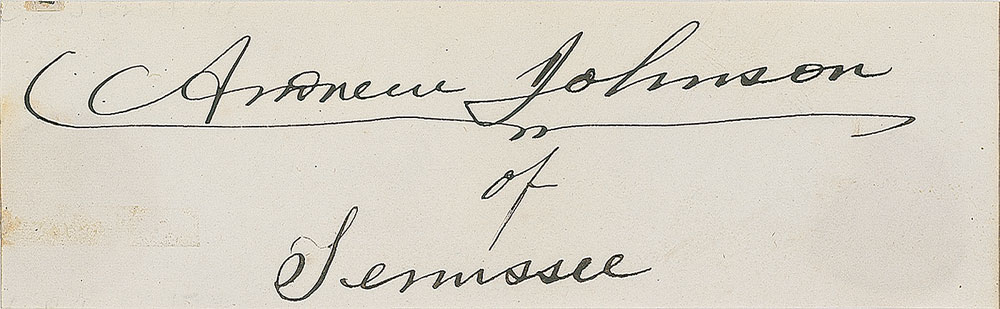 Andrew Johnson
of
Tennessee